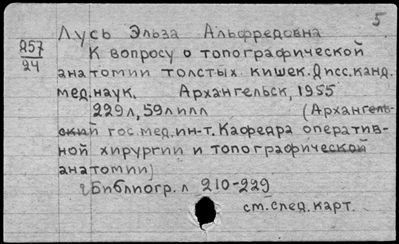 5
Лусь Эльза Альфредовна
Д57/24 К вопросу о топографической
анатомии толстых кишек. Дисс. канд.
мед. наук. Архангельск, 1955
229 л, 59 илл (Архангель-
ский гос. мед. ин-т. Кафедра оператив-
ной хирургии и топографической
анатомии)
Библиогр. л 210-229
см. след. карт.